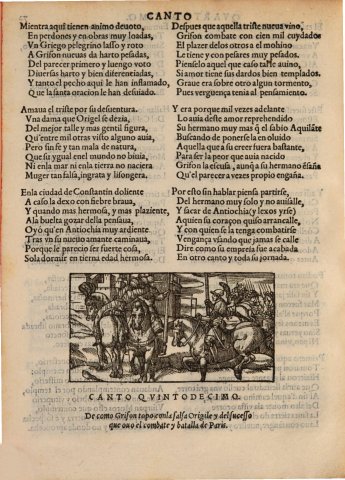 CANTO
Mientra aqui tienen animo deuoto,
En perdones y en obras muy loadas,
Vn Griego pelegrino lasso y roto
A Grifon nueuas da harto pesadas,
Del parecer primero y luengo voto
Diuersas harto y bien diferentiadas,
Y tanto el pecho aqui le han inflamado,
Que la santa oracion le han desuiado.
Amaua el triste por su desuentura
Vna dama que Origil se dezia,
Del mejor talle y mas gentil figura,
Qu'entre mil otras visto alguno auia,
Pero sin fe y tan mala de natura,
Que su ygual enel mundo no biuia,
Ni en la mar ni enla tierra no naciera
Muger tan falsa, ingrata y lisongera.
Enla ciudad de Constantin doliente
A caso la dexo con fiebre braua,
Y quando mas hermosa, y mas plaziente,
Ala buelta gozar della pensaua,
Oyó qu'en Antiochia muy ardiente
Tras vn su nueuo amante caminaua,
Porque le parecio ser fuerte cosa,
Sola dormir en tierna edad hermosa.
Despues que aquella triste nueua vino,
Grifon combate con cien mil cuydados
El plazer delos otros a el mohino
Le tiene y con pesares muy pesados.
Pienselo aquel que caso talle auino,
Si amor tiene sus dardos bien templados.
Graue era sobre otro algun tormento,
Pues verguença tenia al pensamiento.
Y era porque mil vezes adelante
Lo auia deste amor reprehendido
Su hermano muy mas q̃ el sabio Aquilãte
Buscando de ponerse la en oluido
Aquella que a su creer fuera bastante,
Para ser la peor que auia nacido
Grifon la escusa, aunq̃ a su hermano ēgaña
Qu'el parecer a vezes propio engaña.
Por esto sin hablar piensa partirse,
Del hermano muy solo y no auisalle,
Y sacar de Antiochia (y lexos yrse)
Aquien su coraçon quiso arrancalle,
Y con quien se la tenga combatirse
Vengança vsando que jamas se calle
Dire como su empresa fue acabada
En otro canto y toda su jornada.
CANTO QVINTODECIMO.
De como Grifon topo con la falsa Origile y del sucesso
que ouo el combate y batalla de Paris.